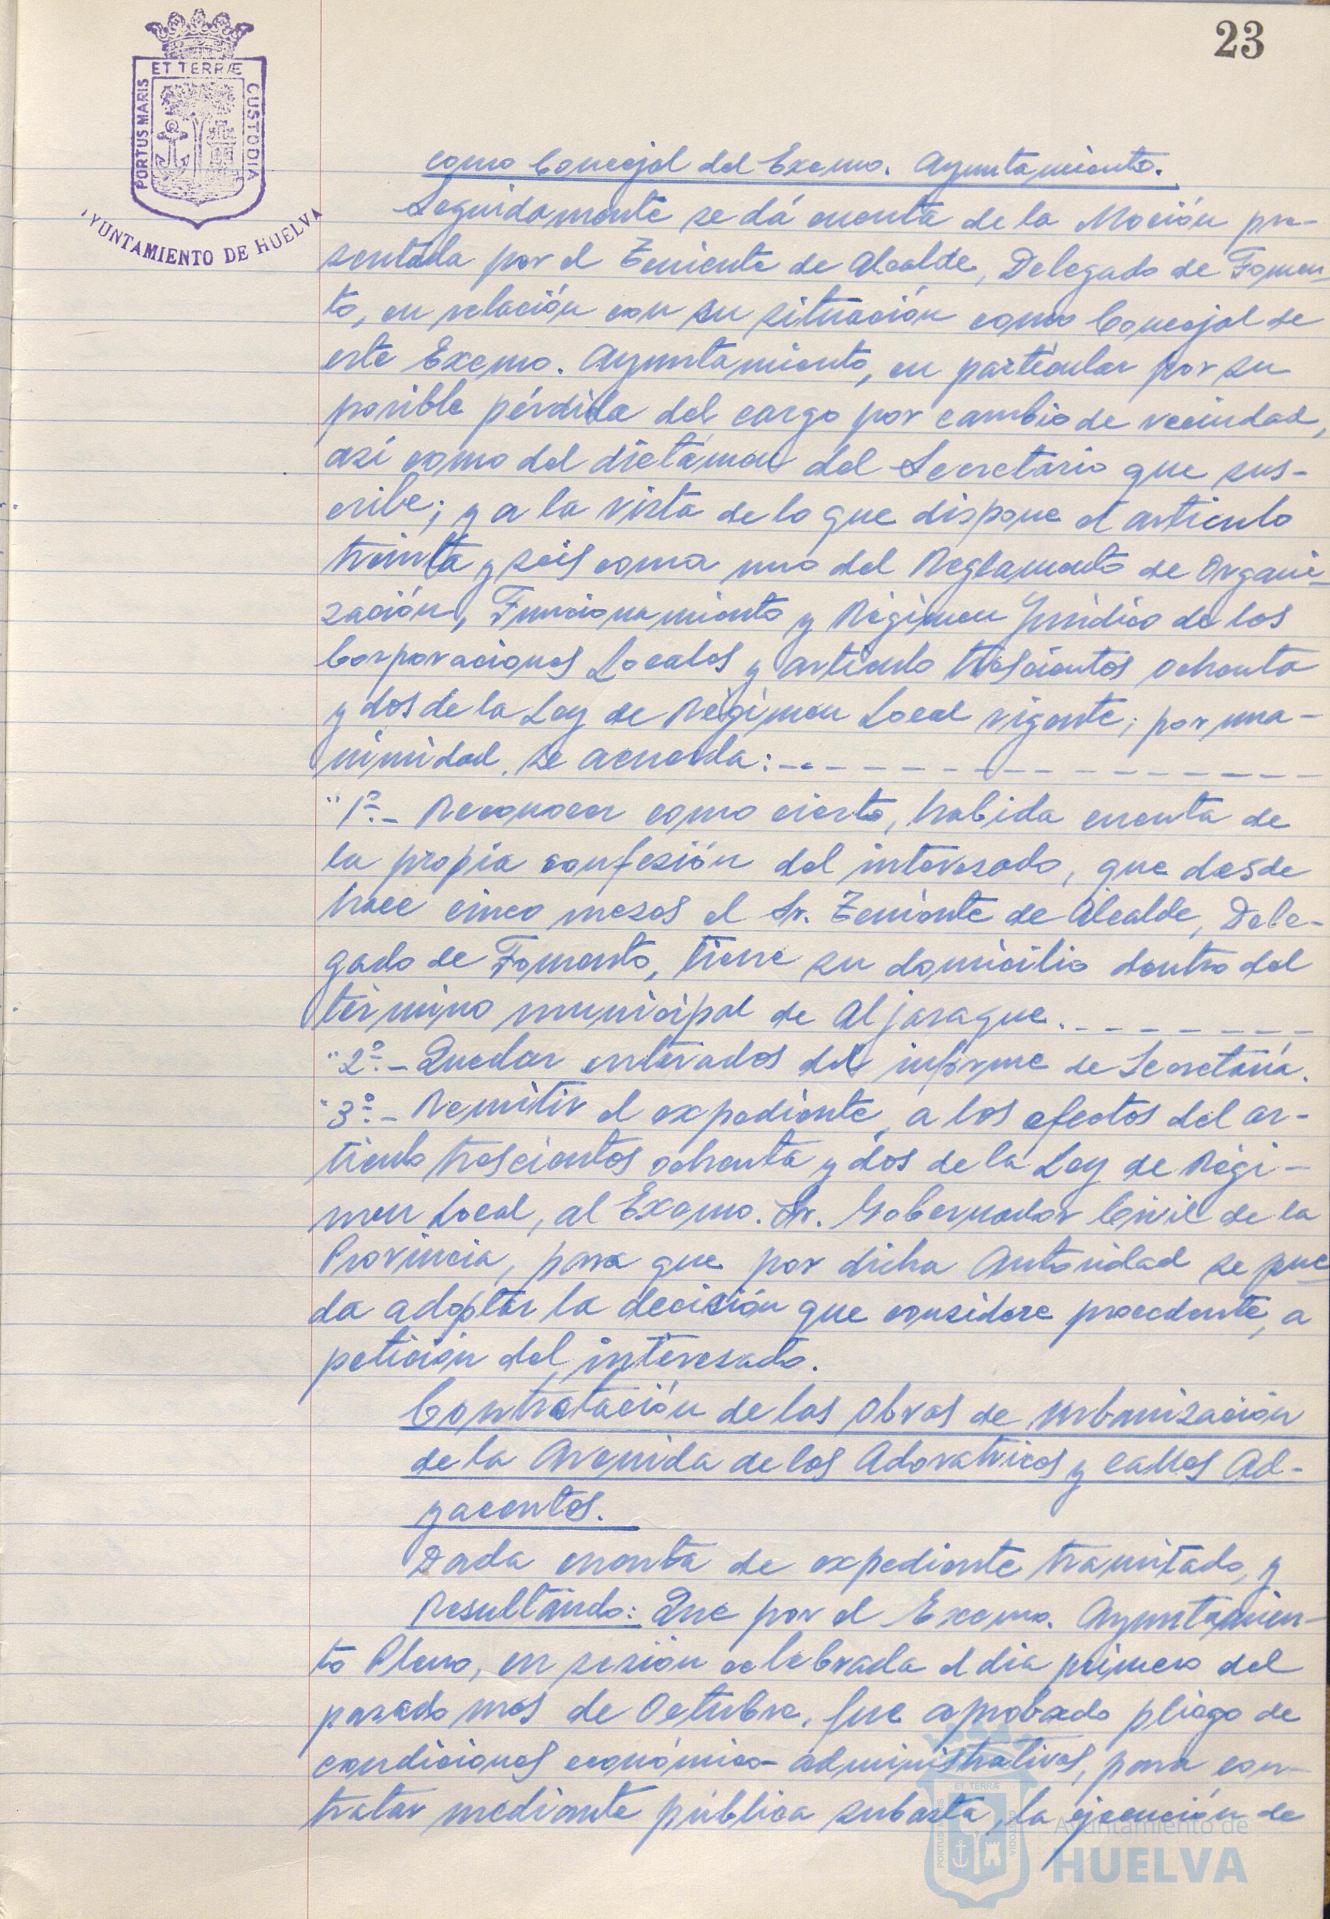 23
ET TERRÆ
PORTUS MARIS
CUSTODIA
AYUNTAMIENTO DE HUELVA
como Concejal del Excmo. Ayuntamiento.
Seguidamente se dá cuenta de la Moción pre-
sentada por el Teniente de Alcalde, Delegado de Fomen-
to, en relación con su situación como Concejal de
este Excmo. Ayuntamiento, en particular por su
posible pérdida del cargo por cambio de vecindad,
así como del dictámen del Secretario que sus-
cribe; y a la vista de lo que dispone el artículo
treinta y seis coma uno del Reglamento de Organi-
zación, Funcionamiento y Régimen Jurídico de las
Corporaciones Locales y artículo trescientos ochenta
y dos de la Ley de Régimen Local vigente; por una-
nimidad, se acuerda:
"1º.- Reconocer como cierto, habida cuenta de
la propia confesión del interesado, que desde
hace cinco meses el Sr. Teniente de Alcalde, Dele-
gado de Fomento, tiene su domicilio dentro del
término municipal de Aljaraque.
"2º.- Quedar enterados del informe de Secretaría.
"3º.- Remitir el expediente, a los efectos del ar-
tículo trescientos ochenta y dos de la Ley de Régi-
men Local, al Excmo. Sr. Gobernador Civil de la
Provincia, para que por dicha Autoridad se pue
da adoptar la decisión que considere procedente, a
petición del interesado.
Contratación de las obras de urbanización
de la Avenida de las Adoratrices y calles Ad-
yacentes.
Dada cuenta de expediente tramitado, y
Resultando: Que por el Excmo. Ayuntamien-
to Pleno, en sesión celebrada el día primero del
pasado mes de Octubre, fue aprobado pliego de
condiciones económico-administrativas, para con-
tratar mediante pública subasta, la ejecución de
ET TERRÆ
PORTUS MARIS
CUSTODIA
Ayuntamiento de
HUELVA